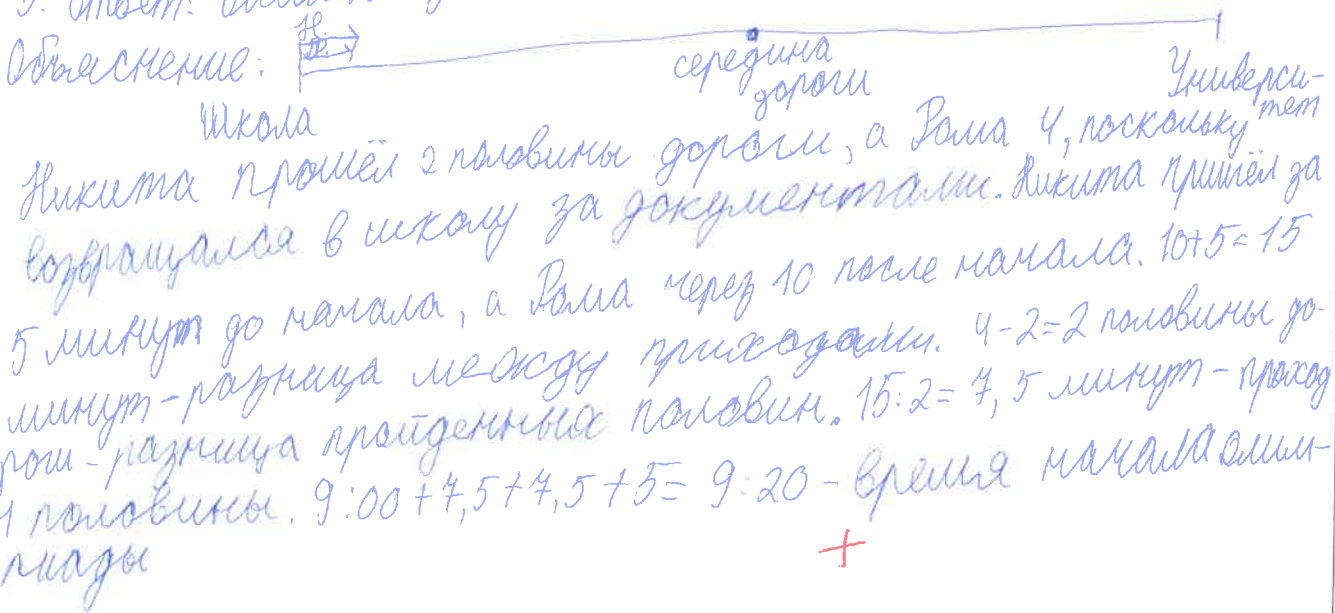 Ответ:
Объяснение:
Н.
Р.
середина
дороги
Универси-
тет
Школа
Никита прошёл 2 половины дороги, а Рома 4, поскольку
возвращался в школу за документами. Никита пришёл за
5 минут до начала, а Рома через 10 после начала. 10+5=15
минут - разница между приходами. 4-2=2 половины до-
роги - разница пройденных половин. 15:2=7,5 минут - проход
1 половины. 9:00+7,5+7,5+5=9:20 - время начала олим-
пиады
+